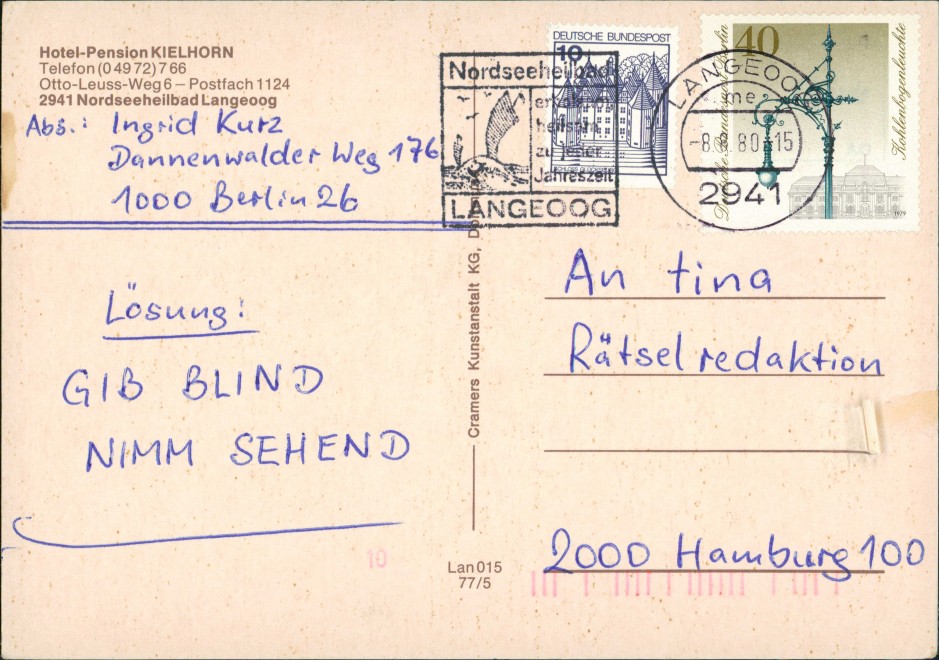 Hotel-Pension KIELHORN
Telefon (0 49 72) 7 66
Otto-Leuss-Weg 6 – Postfach 1124
2941 Nordseeheilbad Langeoog
Abs.: Ingrid Kurz
Dannenwalder Weg 176
1000 Berlin 26
Nordseeheilbad
zu jeder
Jahreszeit
LANGEOOG
DEUTSCHE BUNDESPOST
10
40
Deutsche Bundespost Berlin
Kohlenbogenleuchte
1979
LANGEOOG
me
80-15
2941
Lösung:
GIB BLIND
NIMM SEHEND
Cramers Kunstanstalt KG,
Lan 015
77/5
10
An tina
Rätselredaktion
2000 Hamburg 100